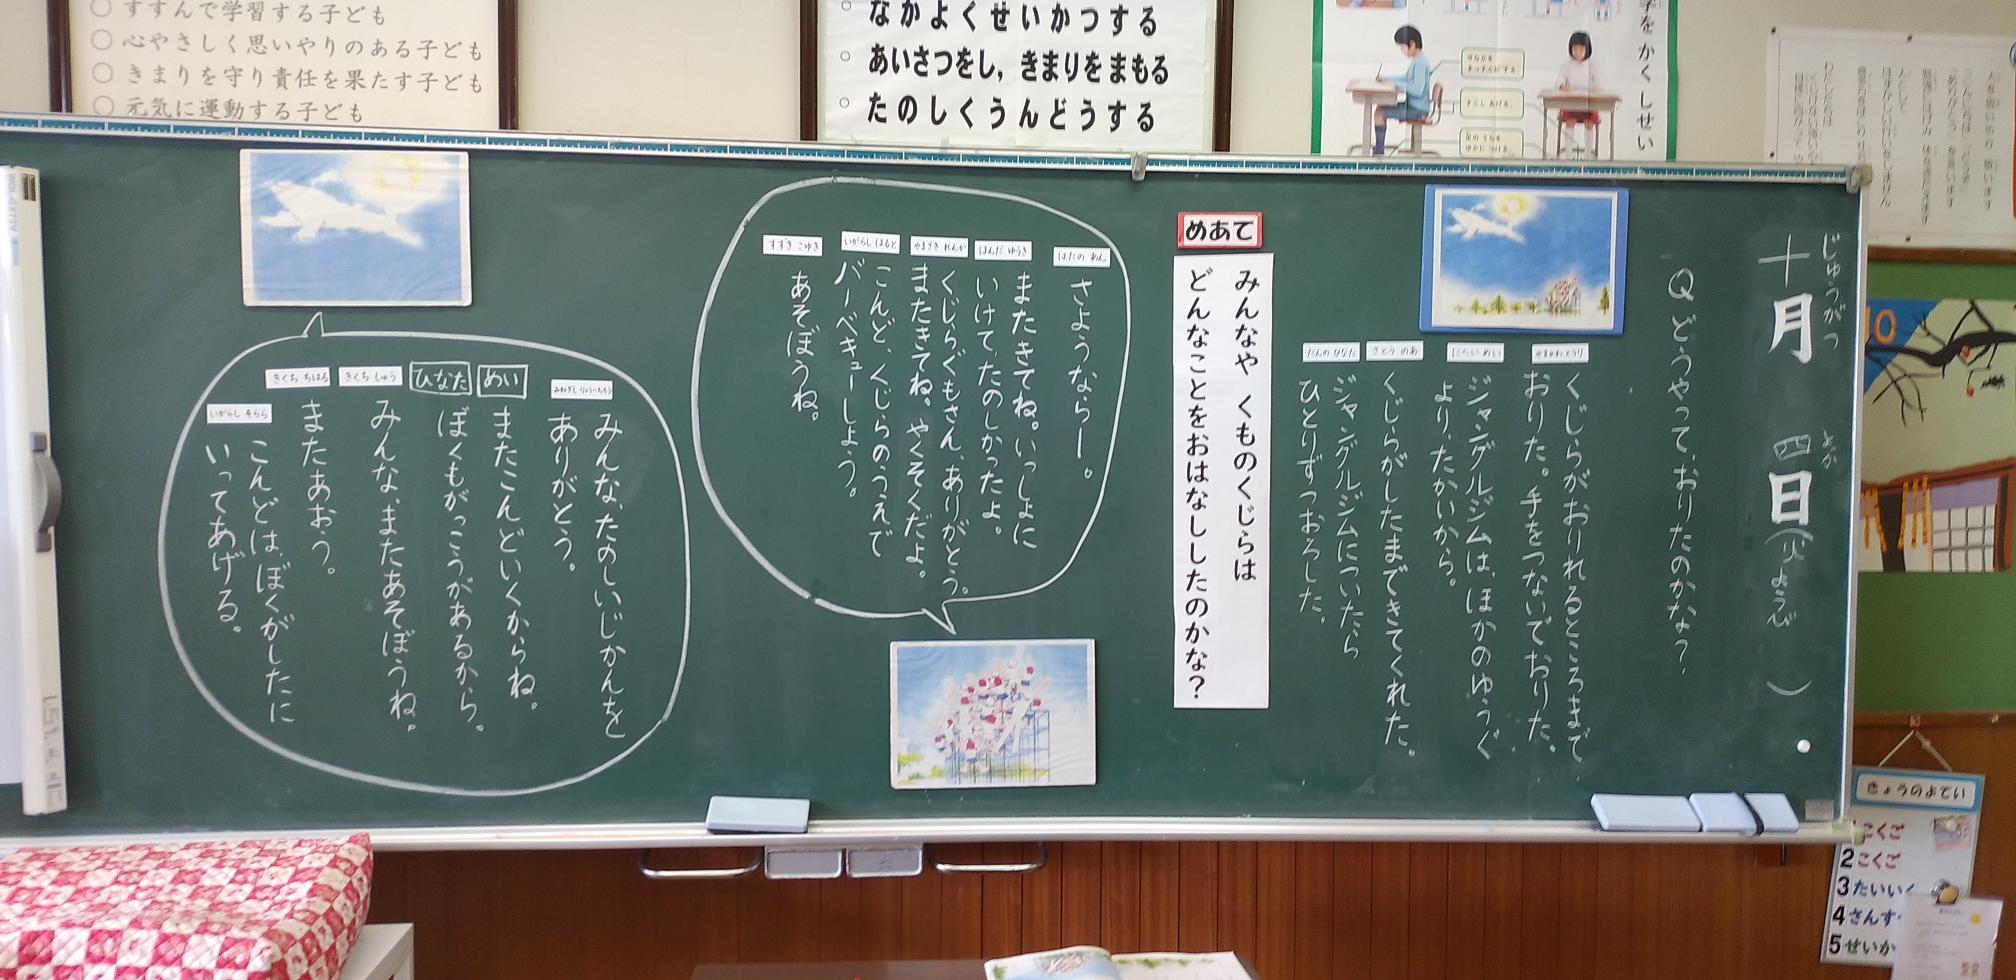 すすんで学習する子ども
心やさしく思いやりのある子ども
きまりを守り責任を果たす子ども
元気に運動する子ども
なかよくせいかつする
あいさつをし,きまりをまもる
たのしくうんどうする
かくしせい
じゅうがつ
よっか
十月 四日(火ようび )
Qどうやって、おりたのかな?
くじらがおりれるところまで
おりた。手をつないでおりた。
ジャングルジムは、ほかのゆうぐ
より、たかいから。
さとう のあ
くじらがしたまできてくれた。
たんの ひなた
ジャングルジムについたら
ひとりずつおろした。
めあて
みんなや くものくじらは
どんなことをおはなししたのかな?
はたの れん
さようならー。
ほんだ ゆうき
またきてね。いっしょに
いけて、たのしかったよ。
やまざき れんか
くじらぐもさん、ありがとう。
またきてね。やくそくだよ。
いがらし はると
こんど、くじらのうえで
バーベキューしよう。
すずき こゆき
あそぼうね。
みねぎし りょういちろう
みんな、たのしいじかんを
ありがとう。
めい
またこんどいくからね。
ひなた
ぼくもがっこうがあるから。
きくち しゅう
みんな、またあそぼうね。
きくち ちはる
またあおう。
いがらし そらら
こんどは、ぼくがしたに
いってあげる。
10
きょうのよてい
こくご
2 こくご
3 たいいく
4 さんす
5 せいか